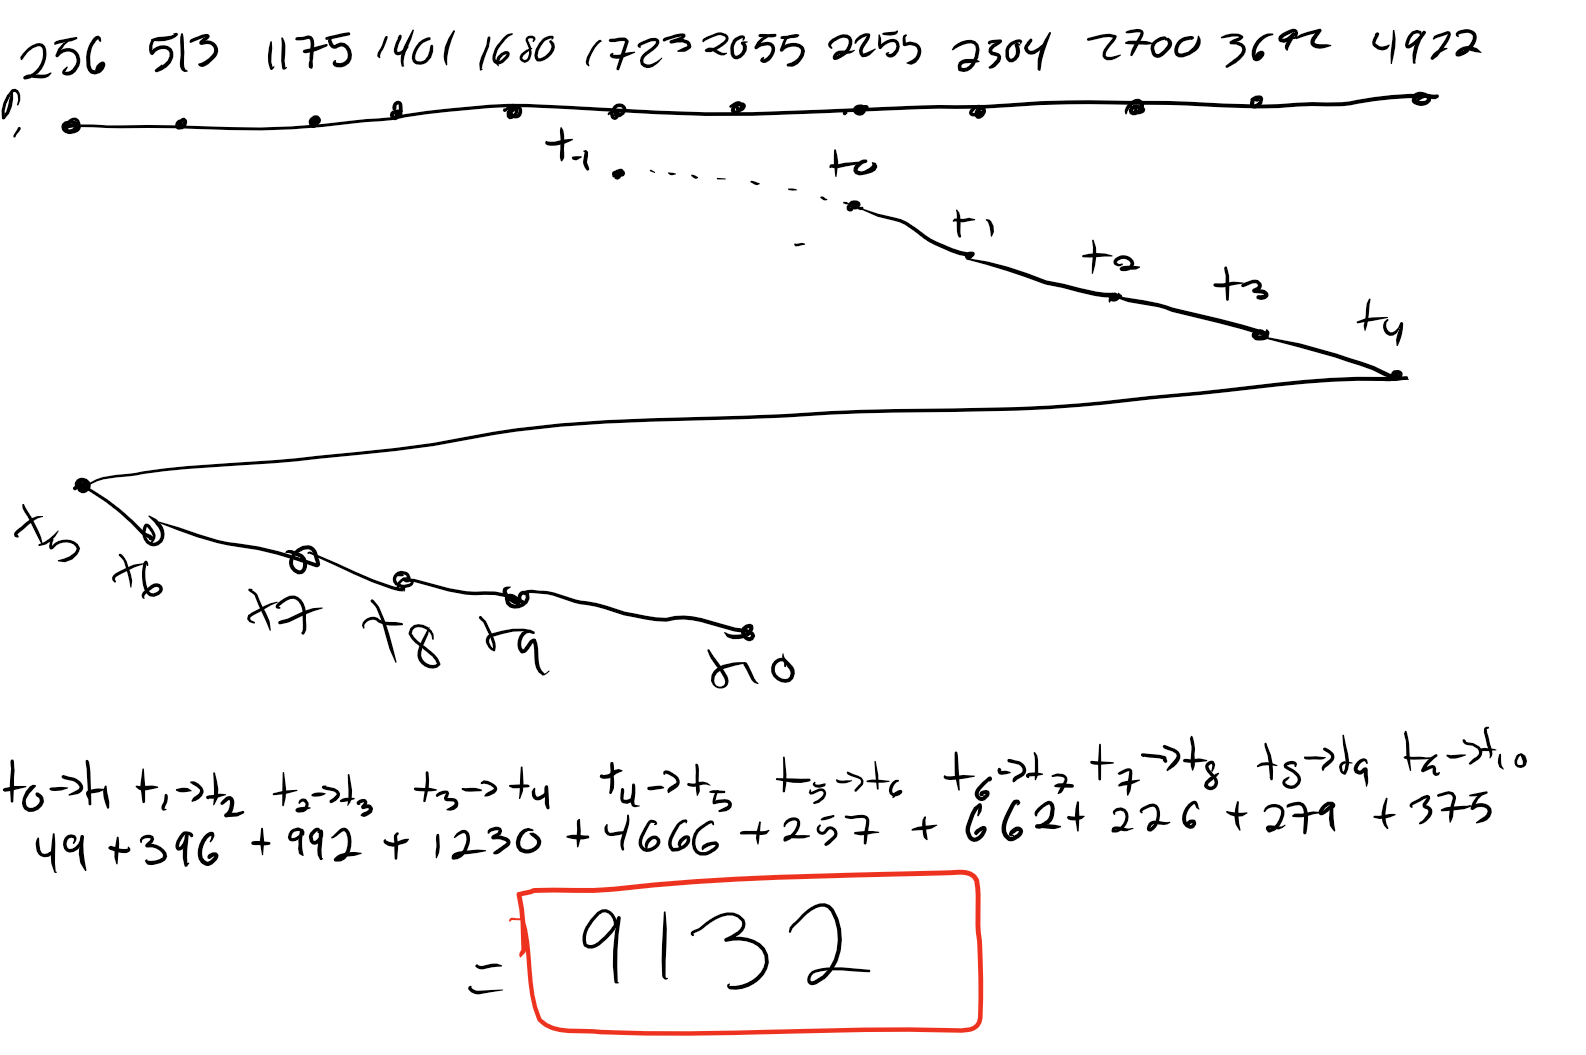 256 513 1175 1401 1680 1723 2055 2255 2304 2700 3692 4922
t-1
t0
t1
t2
t3
t4
t5
t6
t7
t8
t9
t10
t0→t1 t1→t2 t2→t3 t3→t4 t4→t5 t5→t6 t6→t7 t7→t8 t8→t9 t9→t10
49 + 396 + 992 + 1230 + 4666 + 257 + 662 + 226 + 279 + 375
= 9132